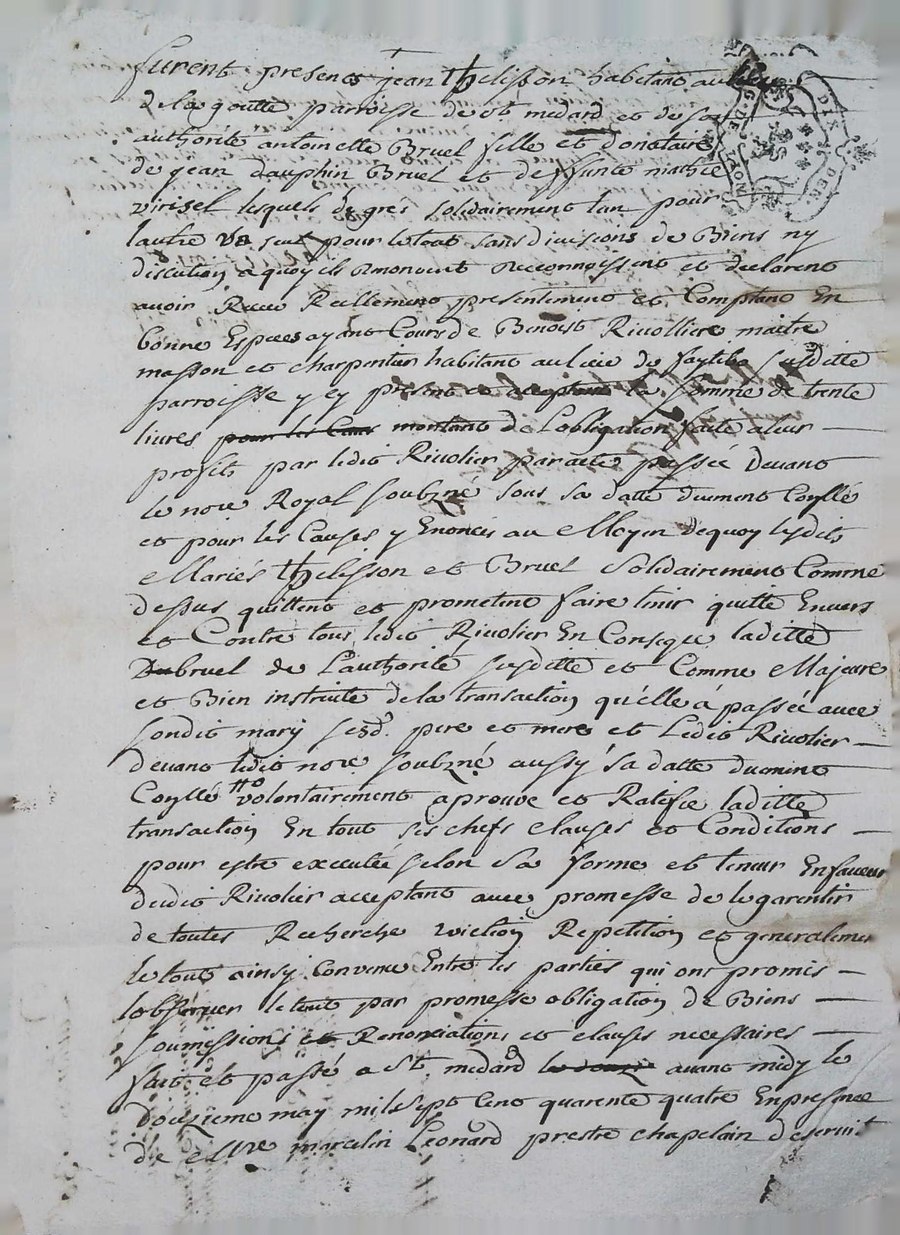 furent presents jean thelisson habitant au lieu
de la goutte parroisse de st medard et de son
authorité antoinette Bruel fille et donataire
de jean dauphin Bruel et deffunte mathie
virisel lesquels de grés solidairement lun pour
lautre un seul pour le tout sans divisions de Biens ny
discution a quoy ils renoncent reconnoissent et declarent
avoir Receu Reellement presentement et Comptant En
bonne Especes ayant Cours de Benoist Rivollier maitre
masson et charpentier habitant au lieu de susditte
parroisse y ey present ce acceptant la somme de trente
livres pour les Caus montant de Lobligation faite a leur
profit par ledit Rivolier par acte passée devant
le nore Royal soubzné sous sa datte duement Conllé
et pour les Causes y Enoncés au Moyen dequoy lesdits
Mariés thelisson et Bruel solidairement Comme
dessus quittent et promettent faire tenir quitte Envers
et Contre tous ledit Rivolier En Conseqce laditte
Dubruel de Lauthorité susditte et Comme Majeure
et Bien instruite de la transaction qu'elle á passée avec
sondit mary sesd. pere et mere et Ledit Rivolier
devant ledit nore soubzné aussy sa datte duement
Conllé volontairement aprouve et Ratifie laditte
transaction En tout ses chefs clauses et Conditions
pour estre executée selon sa forme et teneur En faveur
dudit Rivolier acceptant avec promesse de le garentir
de toutes Recherche eviction Repetition et generalement
le tout ainsy Convenu Entre les parties qui ont promis
lobserver le tout par promesse obligation de Biens
soumissions et Renonciations et clauses necessaires
fait et passé a St. medard le douze avant midy le
douzieme may mil sept Cent quarente quatre En presence
de Mre marcelin Leonard prestre chapelain deservit
G. DE LYON
DIX DEN.